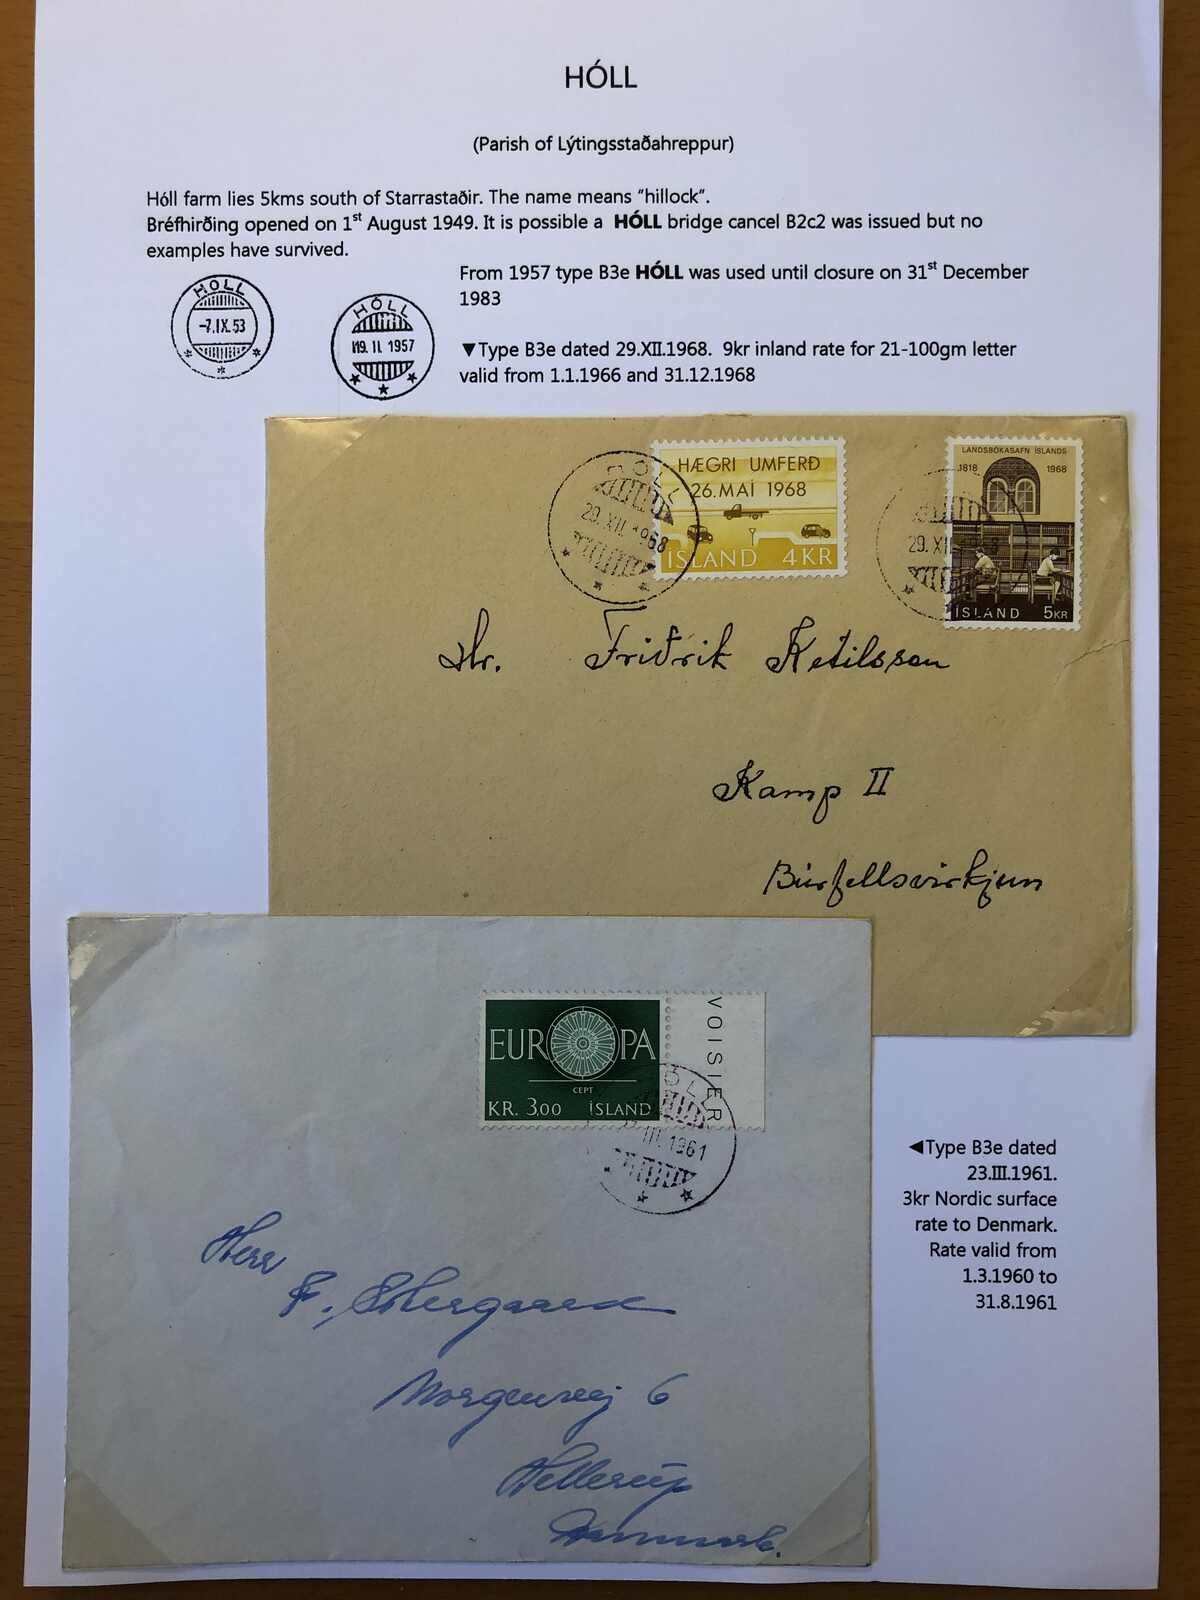 HÓLL
(Parish of Lýtingsstaðahreppur)
Hóll farm lies 5kms south of Starrastaðir. The name means "hillock".
Bréfhirðing opened on 1st August 1949. It is possible a HÓLL bridge cancel B2c2 was issued but no
examples have survived.
From 1957 type B3e HÓLL was used until closure on 31st December
1983
HOLL
-7.IX.53
HÓLL
19. II. 1957
▼Type B3e dated 29.XII.1968. 9kr inland rate for 21-100gm letter
valid from 1.1.1966 and 31.12.1968
HÓLL
29. XII. 1968
HÆGRI UMFERÐ
26. MAÍ 1968
ÍSLAND 4 KR
29. XII. 1968
LANDSBÓKASAFN ÍSLANDS
1818 1968
ÍSLAND 5 KR
Hr. Friðrik Ketilsson
Kamp II
Búrfellsvirkjun
EUROPA
CEPT
KR. 3.00 ÍSLAND
VOISIER
HÓLL
III. 1961
◄Type B3e dated
23.III.1961.
3kr Nordic surface
rate to Denmark.
Rate valid from
1.3.1960 to
31.8.1961
Herr
F.
Morgenvej 6
Hellerup
Danmark.